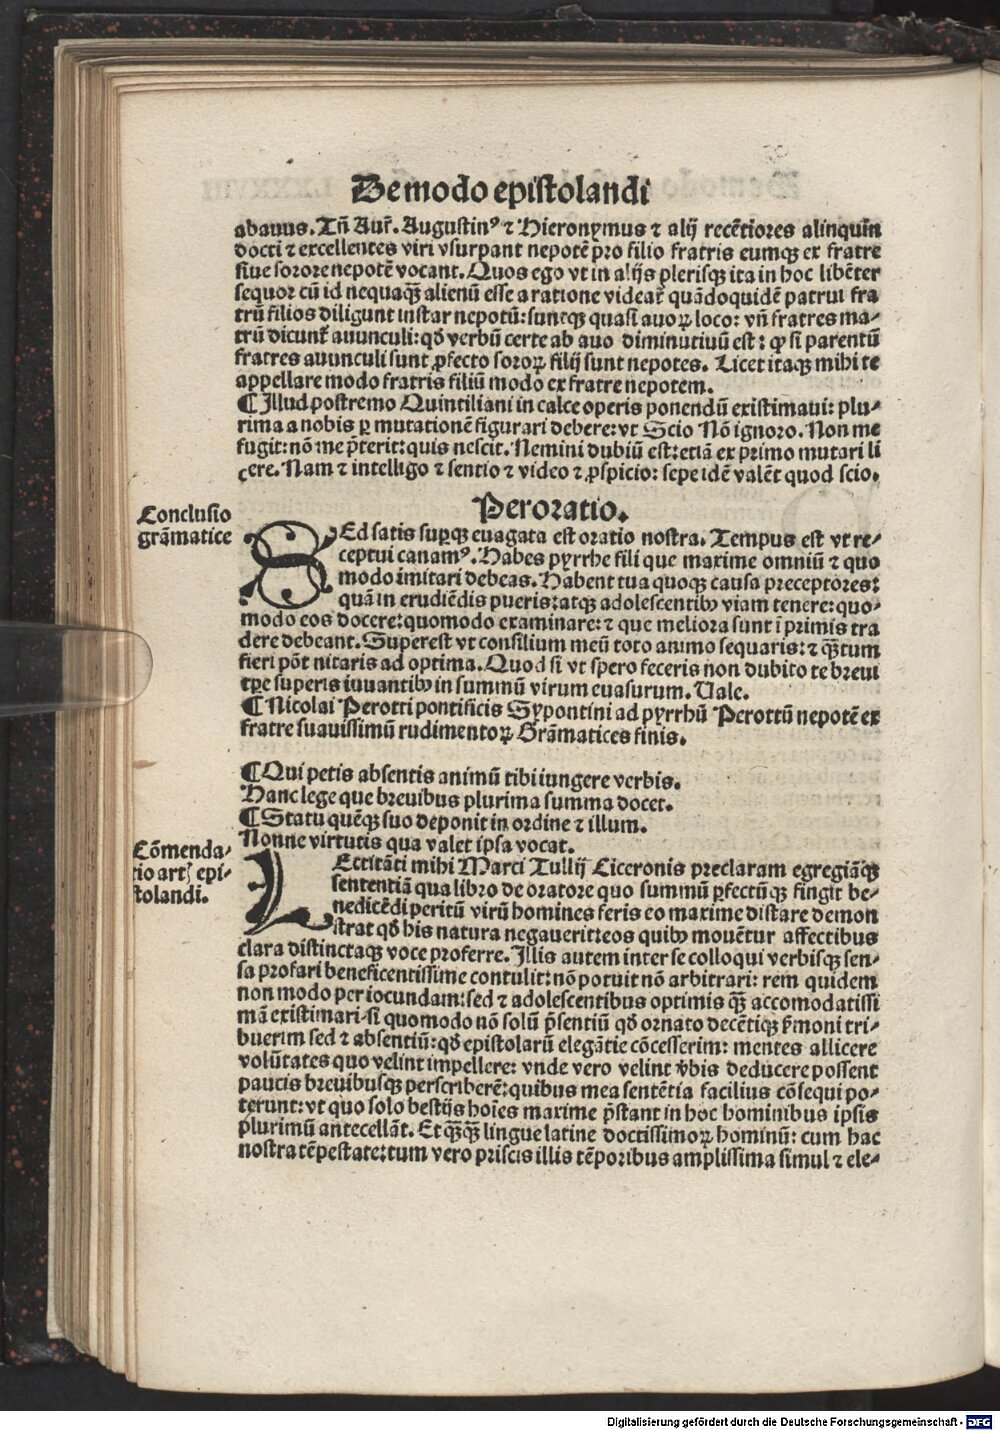 De modo epistolandi
abauus. Tñ Aur̃. Augustinꝰ ⁊ Hieronymus ⁊ alij recẽtiores alinquin
docti ⁊ excellentes viri vsurpant nepotẽ pro filio fratris eumqꝫ ex fratre
siue sorore nepotẽ vocant. Quos ego vt in alijs plerisqꝫ ita in hoc libẽter
sequor cũ id nequaqꝫ̃ alienũ esse a ratione videar̃ quãdoquidẽ patrui fra
trũ filios diligunt instar nepotũ: suntqꝫ quasi auoꝝ loco: vñ fratres ma-
trũ dicunt̃ auunculi: qđ verbũ certe ab auo diminutiuũ est: ꝙ si parentũ
fratres auunculi sunt ꝓfecto soroꝝ filij sunt nepotes. Licet itaqꝫ mihi te
appellare modo fratris filiũ modo ex fratre nepotem.
¶ Illud postremo Quintiliani in calce operis ponendũ existimaui: plu-
rima a nobis ꝑ mutationẽ figurari debere: vt Scio Nõ ignoro. Non me
fugit: nõ me p̃terit: quis nescit. Nemini dubiũ est: etiã ex primo mutari li
cere. Nam ⁊ intelligo ⁊ sentio ⁊ video ⁊ ꝓspicio: sepe idẽ valẽt quod scio.
Peroratio.
Conclusio
grãmatice
SEd satis suꝑqꝫ euagata est oratio nostra. Tempus est vt re-
ceptui canamꝰ. Habes pyrrhe fili que maxime omniũ ⁊ quo
modo imitari debeas. Habent tua quoqꝫ causa preceptores:
quã in erudiẽdis pueris: atqꝫ adolescentibꝫ viam tenere: quo-
modo eos docere: quomodo examinare: ⁊ que meliora sunt ĩ primis tra
dere debeant. Superest vt consilium meũ toto animo sequaris: ⁊ qꝫ̃tum
fieri põt nitaris ad optima. Quod si vt spero feceris non dubito te breui
tꝑe superis iuuantibꝫ in summũ virum euasurum. Vale.
¶ Nicolai Perotti pontificis Sypontini ad pyrrhũ Perottũ nepotẽ ex
fratre suauissimũ rudimentoꝝ Grãmatices finis.
¶ Qui petis absentis animũ tibi iungere verbis.
Hanc lege que breuibus plurima summa docet.
¶ Statu quẽqꝫ suo deponit in ordine ⁊ illum.
Nonne virtutis qua valet ipsa vocat.
Cõmenda-
tio artꝭ epi-
stolandi.
LEctitãti mihi Marci Tullij Ciceronis preclaram egregiãqꝫ
sententiã qua libro de oratore quo summũ ꝑfectũqꝫ fingit be-
nedicẽdi peritũ virũ homines feris eo maxime distare demon
strat qđ his natura negauerit: eos quibꝫ mouẽtur affectibus
clara distinctaqꝫ voce proferre. Illis autem inter se colloqui verbisqꝫ sen-
sa profari beneficentissime contulit: nõ potui nõ arbitrari: rem quidem
non modo per iocundam: sed ⁊ adolescentibus optimis qꝫ̃ accomodatissi
mã existimari. si quomodo nõ solũ p̃sentiũ qđ ornato decẽtiqꝫ s̃moni tri-
buerim sed ⁊ absentiũ: qđ epistolarũ elegãtie cõcesserim: mentes allicere
volũtates quo velint impellere: vnde vero velint v̄bis deducere possent
paucis breuibusqꝫ perscriberẽ: quibus mea sentẽtia facilius cõsequi po-
terunt: vt quo solo bestijs hoĩes maxime p̃stant in hoc hominibus ipsis
plurimũ antecellãt. Et qꝫ̃qꝫ̃ lingue latine doctissimoꝝ hominũ: cum hac
nostra tẽpestate: tum vero priscis illis tẽporibus amplissima simul ⁊ ele-
Digitalisierung gefördert durch die Deutsche Forschungsgemeinschaft - DFG